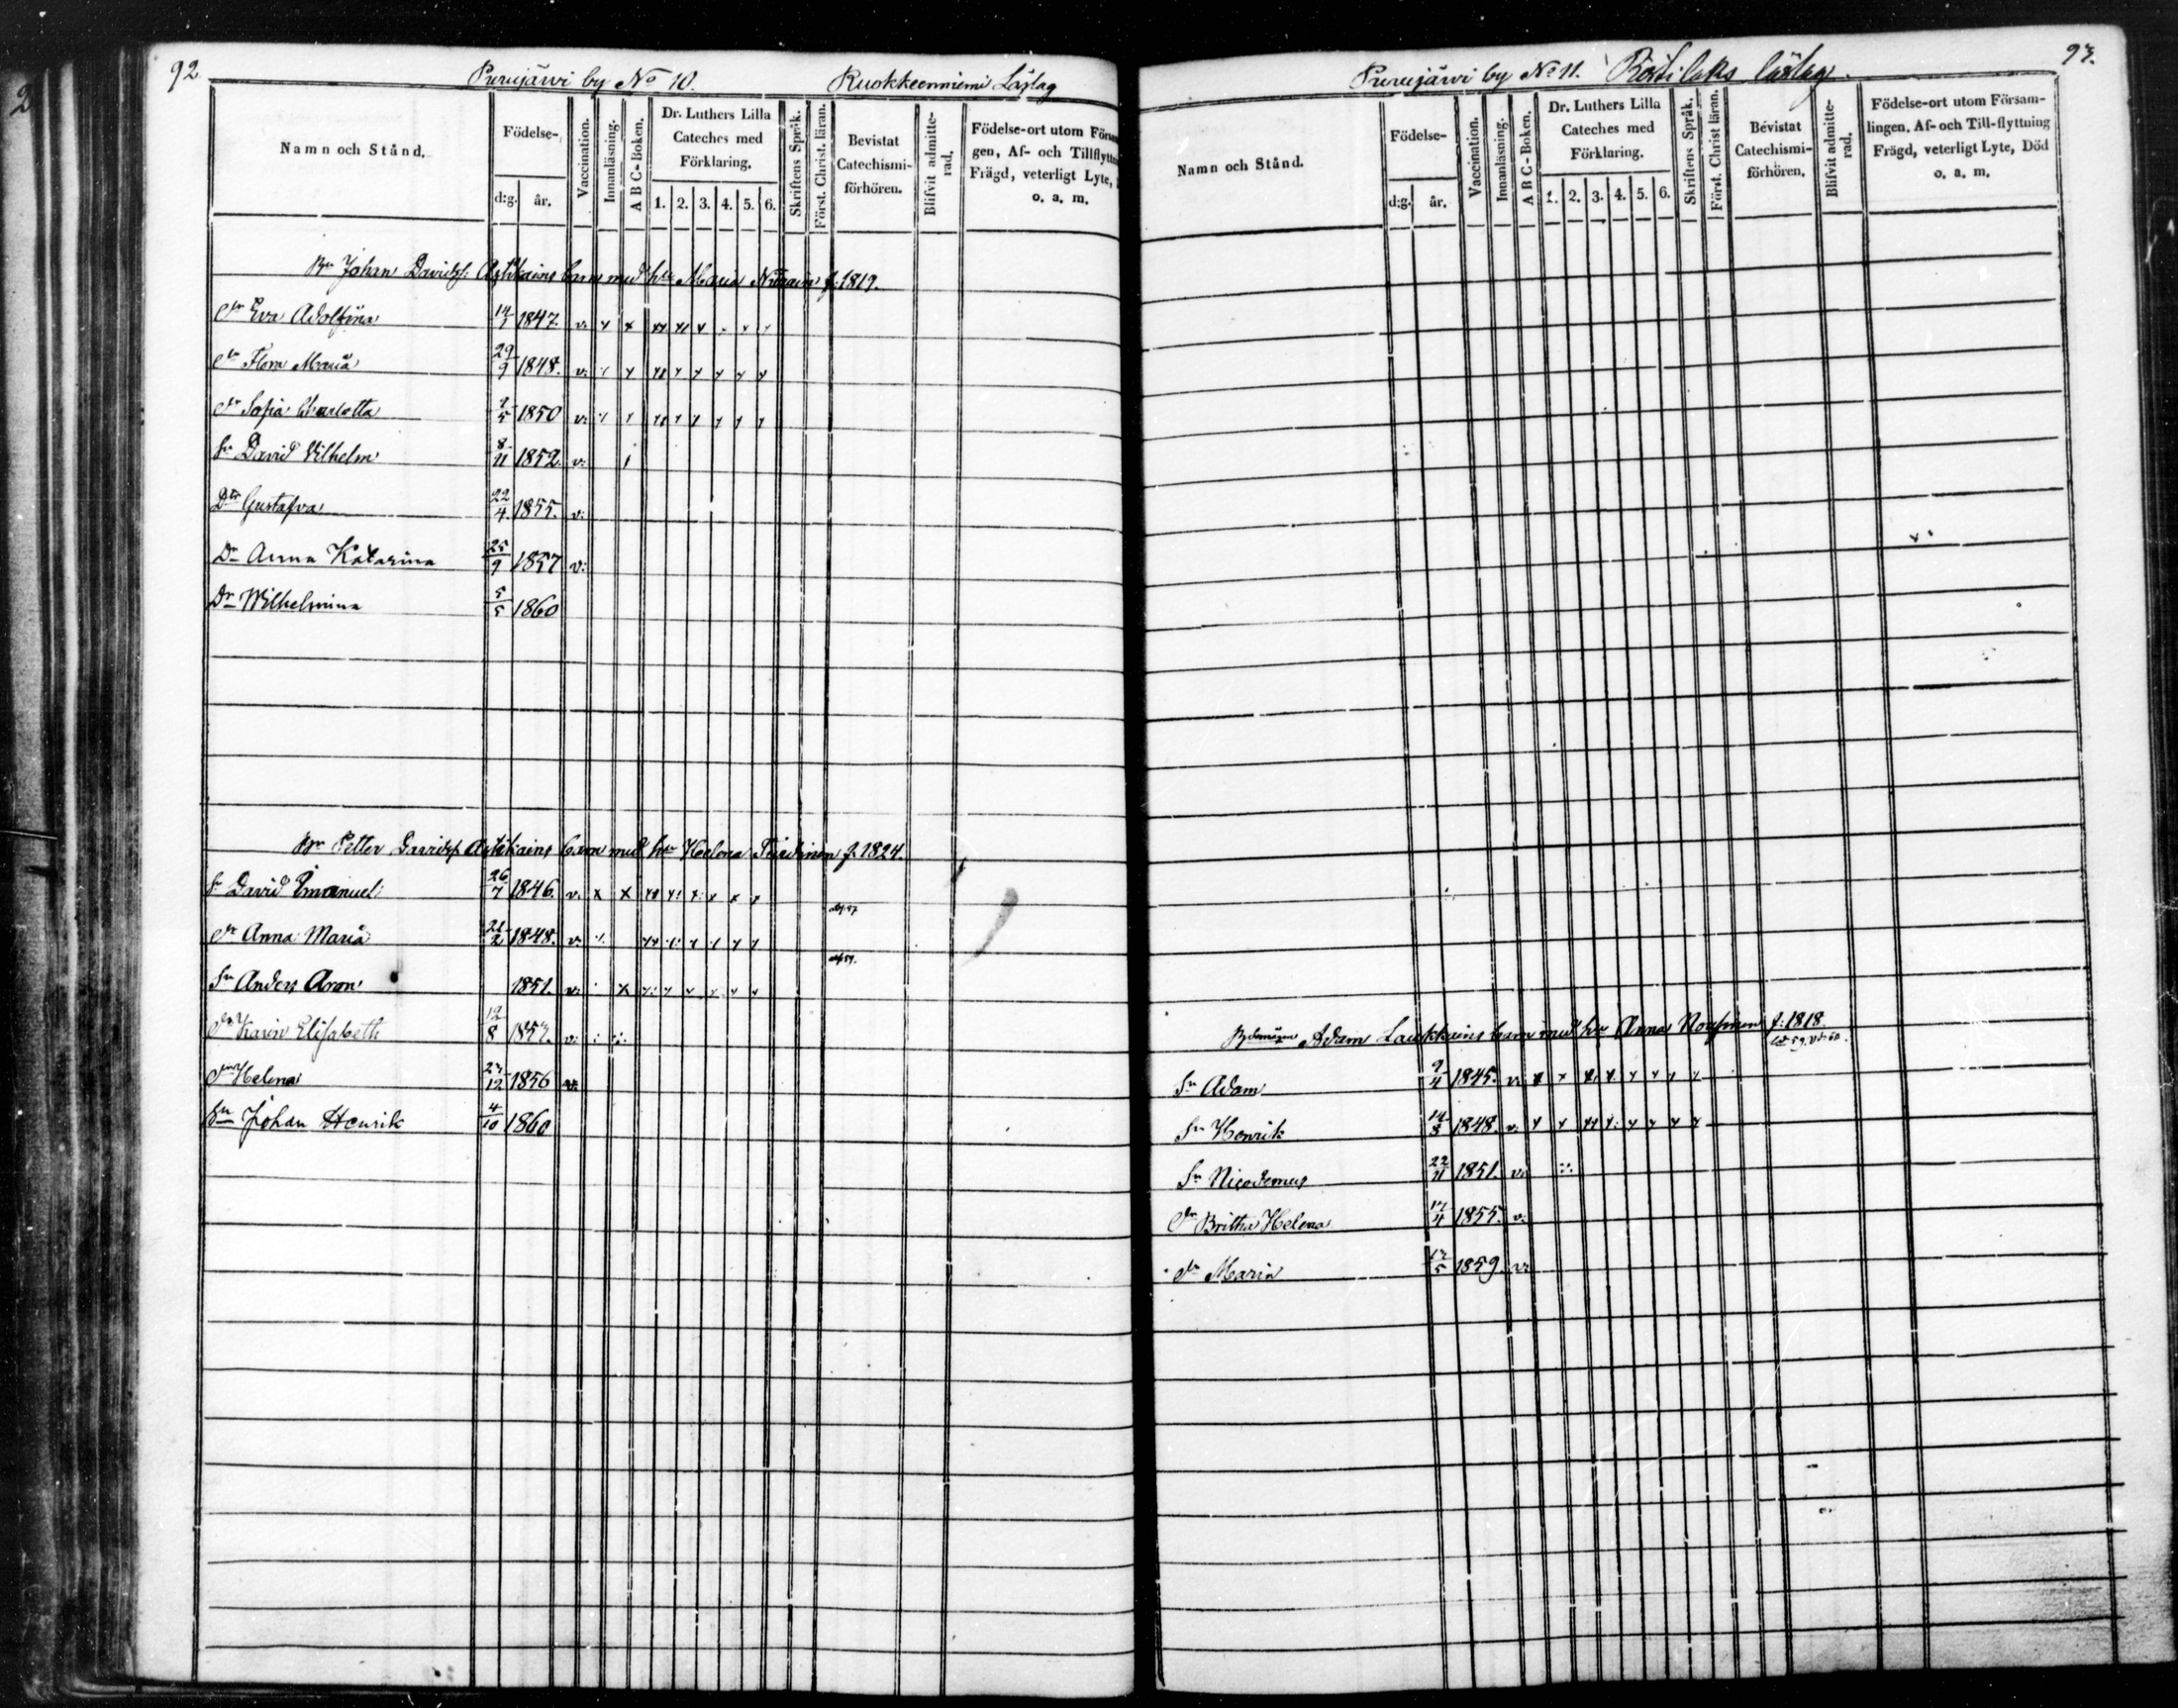 92.
Purujärvi by No 10. Ruokkeenniemi Läslag
Namn och Stånd.
Födelse-
d:g. år.
Vaccination.
Innanläsning.
A B C-Boken.
Dr. Luthers Lilla
Cateches med
Förklaring.
1. 2. 3. 4. 5. 6.
Skriftens Språk.
Först. Christ. läran.
Bevistat
Catechismi-
förhören.
Blifvit admitte-
rad.
Födelse-ort utom Försam
gen, Af- och Tillflyttn
Frägd, veterligt Lyte,
o. a. m.
Bn Johan Davids: barn med hu Maria f: 1819.
Dr Eva Adolfina 1847. v:
Dr Flora Maria 29/9 1848. v:
Dr Sofia Charlotta 1850 v:
Sn David Vilhelm 8/11 1852. v:
Dr Gustafva 22/4 1855. v:
Dr Anna Katarina 25/9 1857 v:
Dr Wilhelmina 5/5 1860
Bn Petter Davids: barn med hu Helena f. 1824.
Sn David Emanuel 26/7 1846. v:
Dr Anna Maria 1848. v:
Sn Anders Aron 1851. v:
Dr Karin Elisabeth 12/8 v:
Dr Helena 1856 v:
Sn Johan Henrik 4/10 1860
93.
Purujärvi by No 11. läslag
Namn och Stånd.
Födelse-
d:g. år.
Vaccination.
Innanläsning.
A B C-Boken.
Dr. Luthers Lilla
Cateches med
Förklaring.
1. 2. 3. 4. 5. 6.
Skriftens Språk.
Först. Christ läran.
Bevistat
Catechismi-
förhören.
Blifvit admitte-
rad.
Födelse-ort utom Försam-
lingen. Af- och Till-flyttning
Frägd, veterligt Lyte, Död
o. a. m.
Adam Laukkains barn med hu Anna f: 1818.
Sn Adam 9/4 1845. v:
Sn Henrik 1848. v:
Sn Nicodemus 22/11 1851. v:
Dr Britha Helena 1855. v:
Dr Maria 1859. v: